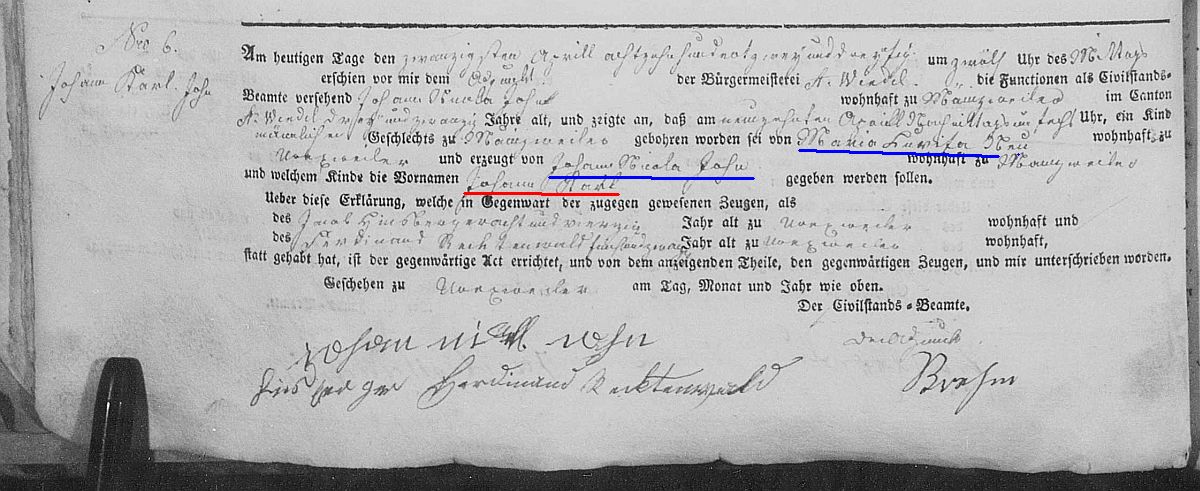 Nro 6.
Johann Karl John
Am heutigen Tage den zwanzigsten Aprill achtzehnhundert zwey und dreysig um zwölf Uhr des Mittags
erschien vor mir dem Adjunkt der Bürgermeisterei St. Wendel die Functionen als Civilstands-
Beamte versehend Johann Nicola John wohnhaft zu im Canton
St. Wendel Jahre alt, und zeigte an, daß am neunzehnten Aprill Nachmittags um sechs Uhr, ein Kind
männlichen Geschlechts zu gebohren worden sei von Maria Luvisa Neu wohnhaft zu
Urexweiler und erzeugt von Johann Nicola John wohnhaft zu
und welchem Kinde die Vornamen Johann Karl gegeben werden sollen.
Ueber diese Erklärung, welche in Gegenwart der zugegen gewesenen Zeugen, als
des Jacob Hinsberger acht und vierzig Jahr alt zu Urexweiler wohnhaft und
des Ferdinand Recktenwald Jahr alt zu Urexweiler wohnhaft,
statt gehabt hat, ist der gegenwärtige Act errichtet, und von dem anzeigenden Theile, den gegenwärtigen Zeugen, und mir unterschrieben worden.
Geschehen zu Urexweiler am Tag, Monat und Jahr wie oben.
Der Civilstands-Beamte.
Der Adjunct
Johan nickll John
Hinsberger Ferdinand Recktenwald Brehm